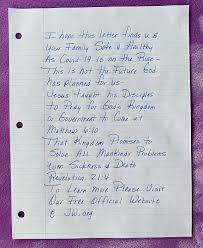 I hope this letter finds u &
your Family Safe & Healthy
As Covid-19 is on the Rise -
This is not the Future God
has planned for us -
Jesus taught his Disciples
to Pray for God's Kingdom
or Government to Come at
Matthew 6:10
That Kingdom Promises to
Solve All Mankinds Problems
Like Sickness & Death
Revelation 21:4
To Learn More Please Visit
Our Free Official Website
@ JW.org